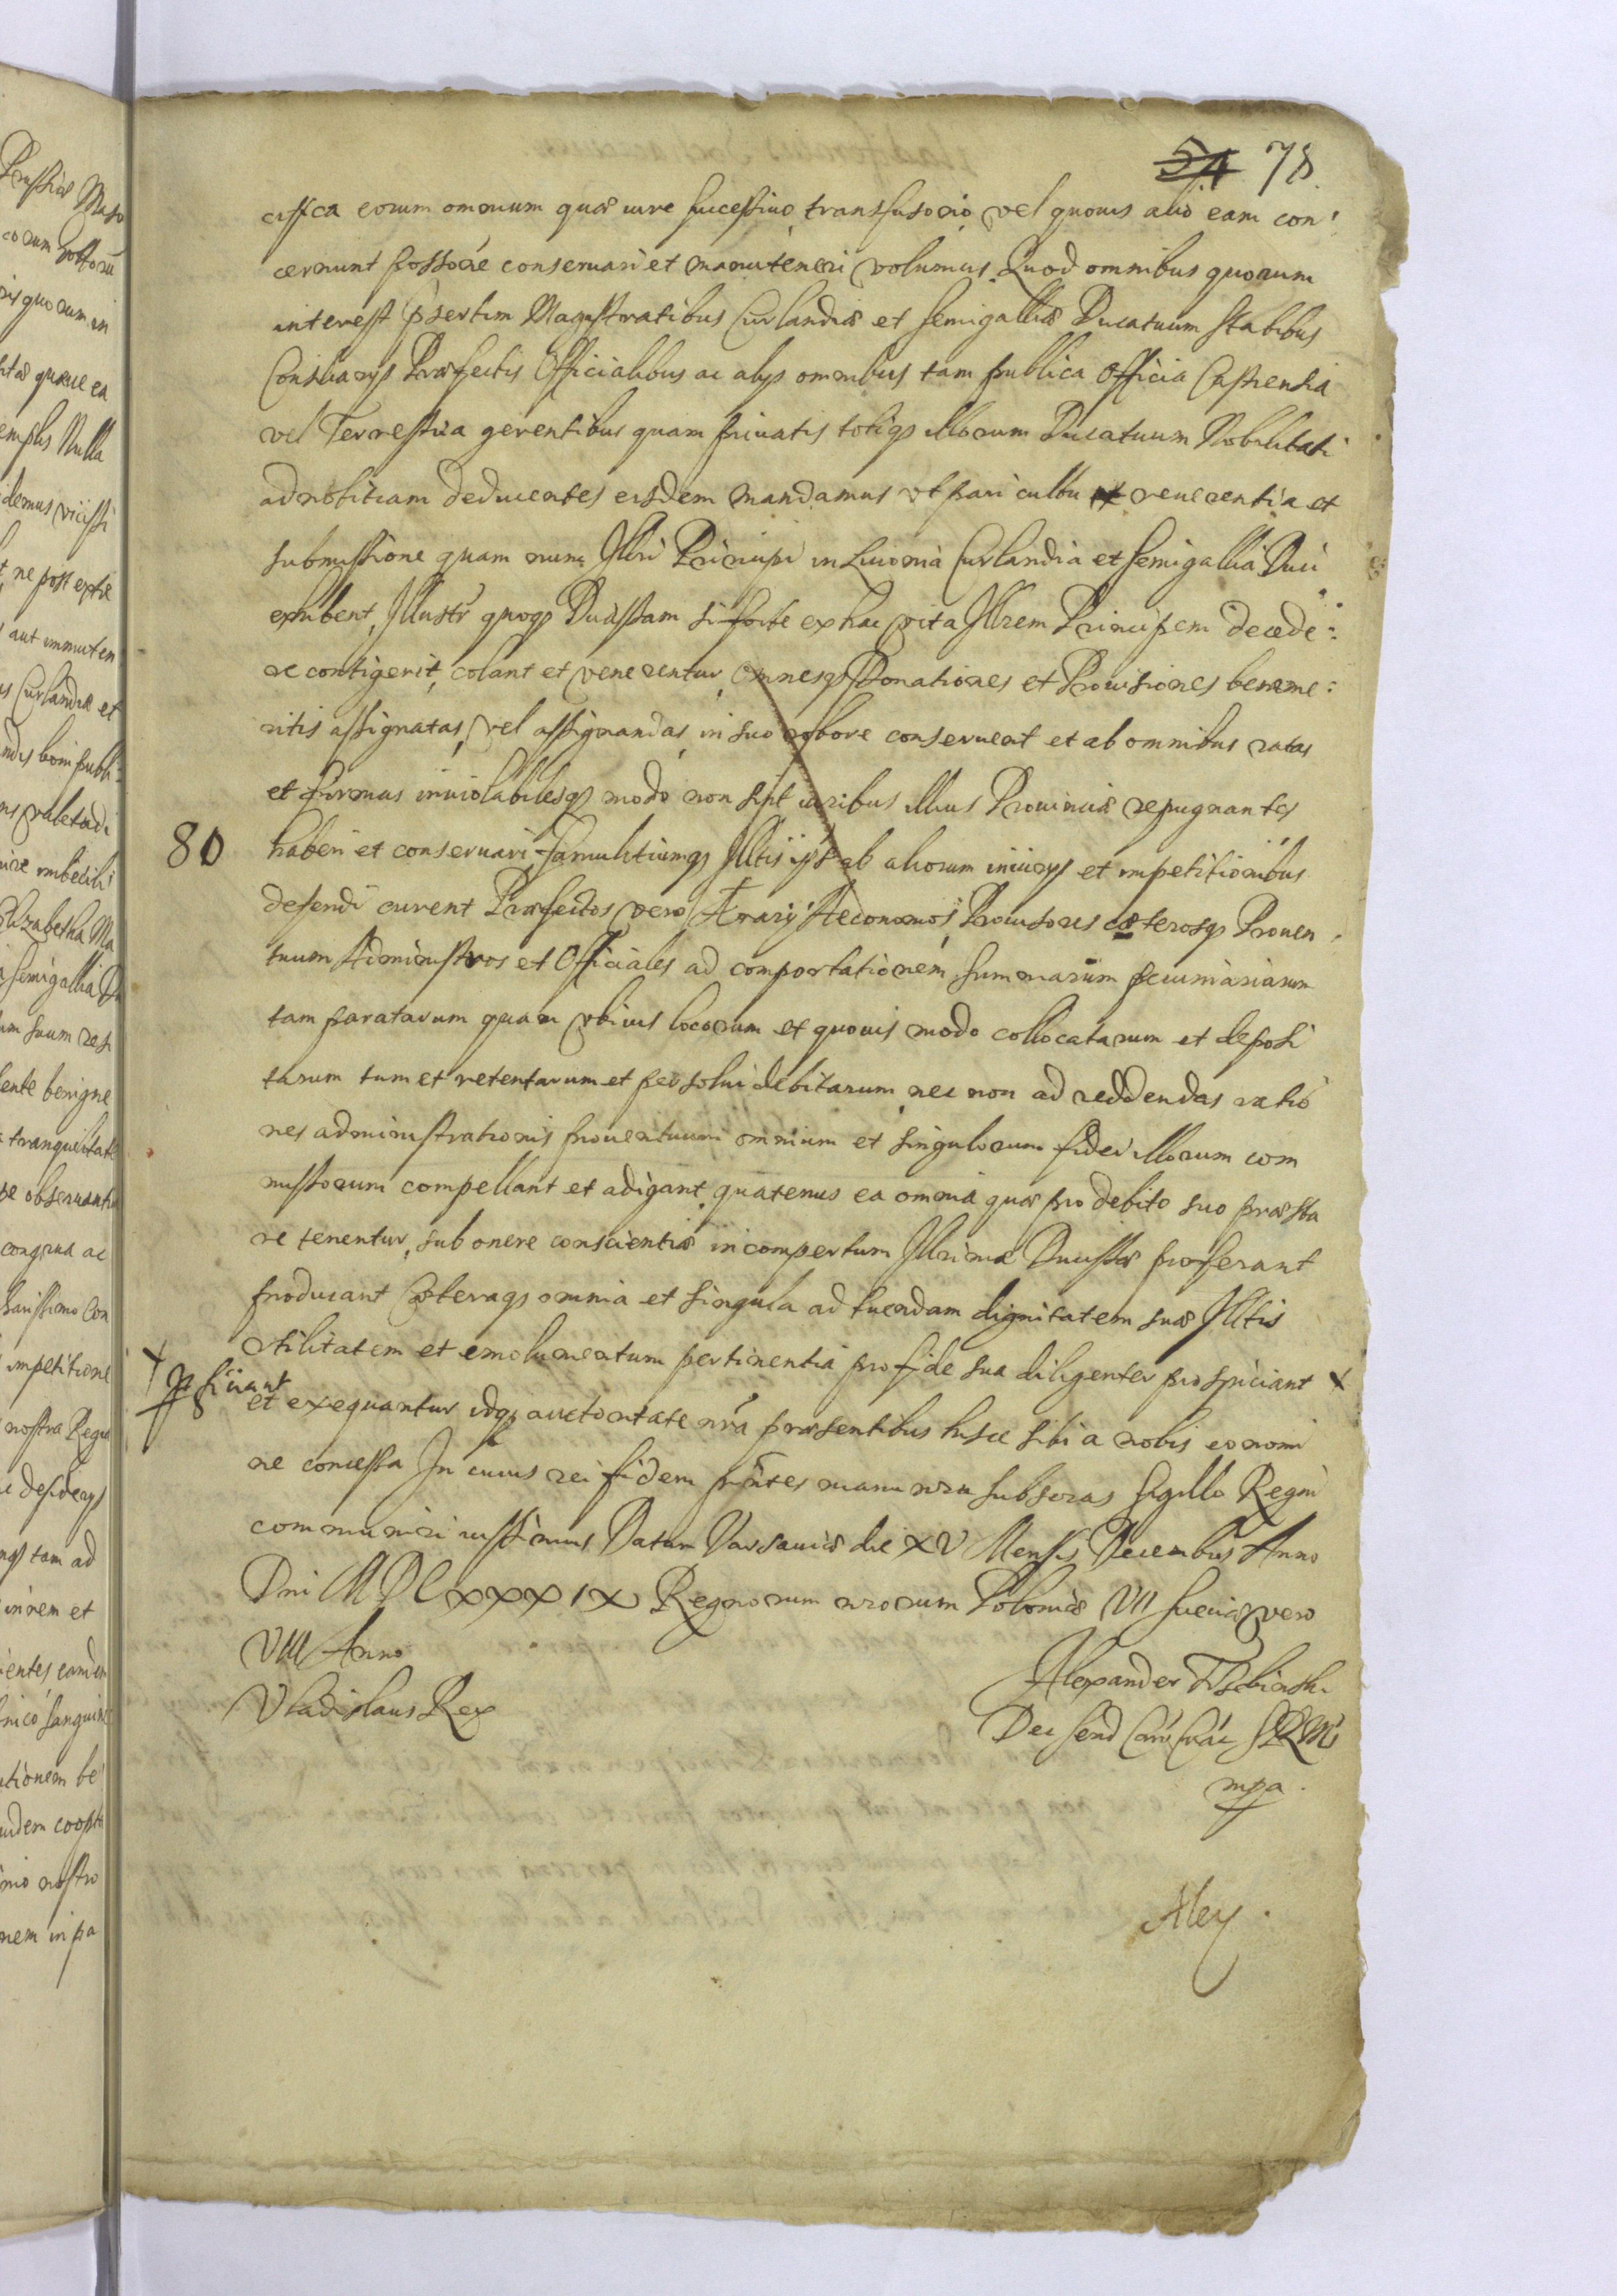 54 78.
cifica eorum omnium quæ iure successiuo transfusorio vel quouis alio eam con:
cernunt possōre conseruari et manuteneri volumus. Quod omnibus quorum
interest p̃sertim Magistratibus Curlandiæ et Semigalliæ Ducatuum Statibus
Consiliarys Præfectis Officialibus ac alys omnibus tam publica Officia Castrensia
vel Terrestria gerentibus quam priuatis totiqȝ illorum Ducatuum Nobilitati
ad notitiam deducentes eisdem mandamus vt pari cultu et reuerentia et
submissione quam nunc Illri Principi in Liuonia Curlandia et Semigallia Duci
exhibent, Illustr quoqȝ Ducissam si forte ex hac vita Illrem Principem decede:
re contigerit, colant et venerentur, Omnesqȝ Donationes et Prouisiones beneme:
ritis assignatas, vel assignandas, in suo robore conseruent et ab omnibus ratas
et firmas inuiolabilesqȝ modo non sint iuribus illius Prouinciæ repugnantes
80 haberi et conseruari, famulitiumqȝ Illtis ab aliorum iniurys et impetitionibus
defendi curent Præfectos vero Ærarij Æconomos, Prouisores cæterosqȝ Prouen
tuum Administros et Officiales ad comportationem summarum pecuniariarum
tam paratarum quam vbiuis locorum et quouis modo collocatarum et deposi
tarum tum et retentarum et persolui debitarum nec non ad reddendas ratio
nes administrationis prouentuum omnium et singulorum fidei illorum com
missorum compellant et adigant quatenus ea omnia quæ pro debito suo præsta
re tenentur, sub onere conscientiæ in compertum Illrimæ Ducissæ proferant
producant Cæteraqȝ omnia et singula ad tuendam dignitatem suæ Illtis
vtilitatem et emolumentum pertinentia pro fide sua diligenter prospiciant x
x
et exequantur idqȝ auctoritate nrã præsentibus hisce sibi a nobis eo nomi
ne concessa In cuius rei fidem pñtes manu nra subscras Sigillo Regni
communiri iussimus Datum Varsauiæ die XV Mensis Decembris Anno
Dni MDCXXXIX Regnorum nrorum Poloniæ VII Sueciæ vero
VIII Anno
Vladislaus Rex
Alexander Trzebinski
Dec SRM
mpa.